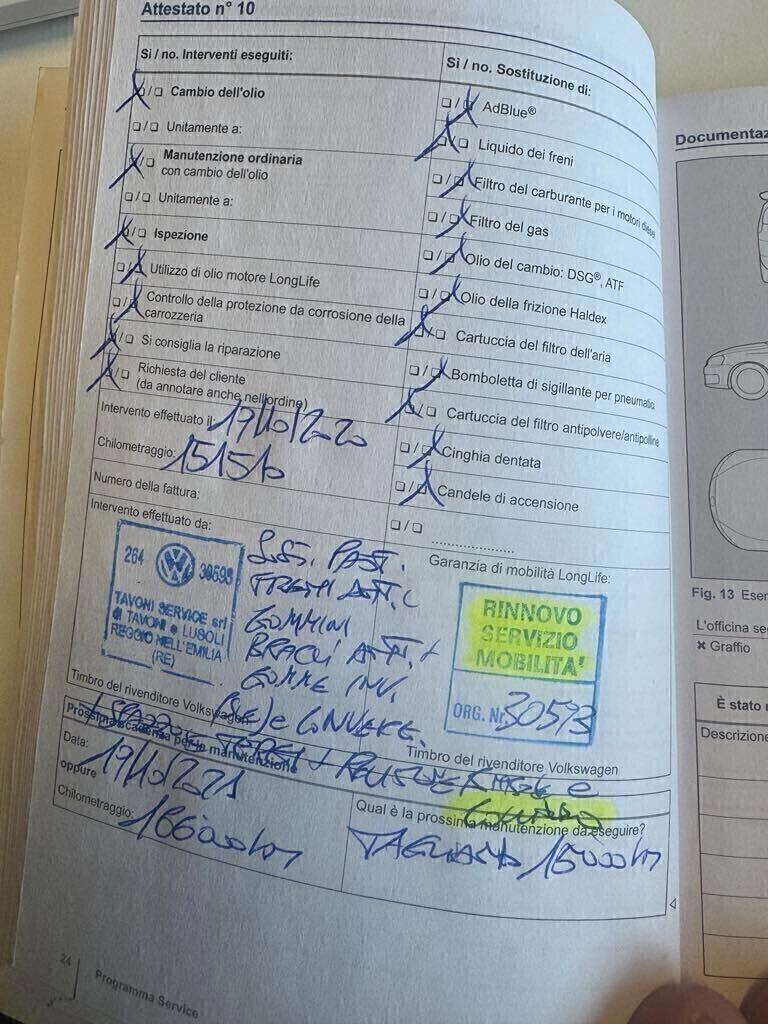 Attestato n° 10
Sì / no. Interventi eseguiti:
Cambio dell'olio
Unitamente a:
Manutenzione ordinaria
con cambio dell'olio
Unitamente a:
Ispezione
Utilizzo di olio motore LongLife
Controllo della protezione da corrosione della
carrozzeria
Si consiglia la riparazione
Richiesta del cliente
(da annotare anche nell'ordine)
Intervento effettuato il: 19/10/2020
Chilometraggio:
Numero della fattura:
Sì / no. Sostituzione di:
AdBlue®
Liquido dei freni
Filtro del carburante per i motori diesel
Filtro del gas
Olio del cambio: DSG®, ATF
Olio della frizione Haldex
Cartuccia del filtro dell'aria
Bomboletta di sigillante per pneumatici
Cartuccia del filtro antipolvere/antipolline
Cinghia dentata
Candele di accensione
Intervento effettuato da:
264 30593
TAVONI SERVICE srl
di TAVONI e LUSOLI
REGGIO NELL'EMILIA
(RE)
PAST.
GOMMINI
GOMME INV.
Timbro del rivenditore Volkswagen
Garanzia di mobilità LongLife:
RINNOVO
SERVIZIO
MOBILITA'
ORG. Nr. 30593
Timbro del rivenditore Volkswagen
Prossima scadenza per la manutenzione
Data: 19/10/2021
oppure
Chilometraggio: 166000 km
Qual è la prossima manutenzione da eseguire?
TAGLIANDO 15000 km
24
Programma Service
Documentaz
Fig. 13
L'officina se
Graffio
È stato
Descrizione